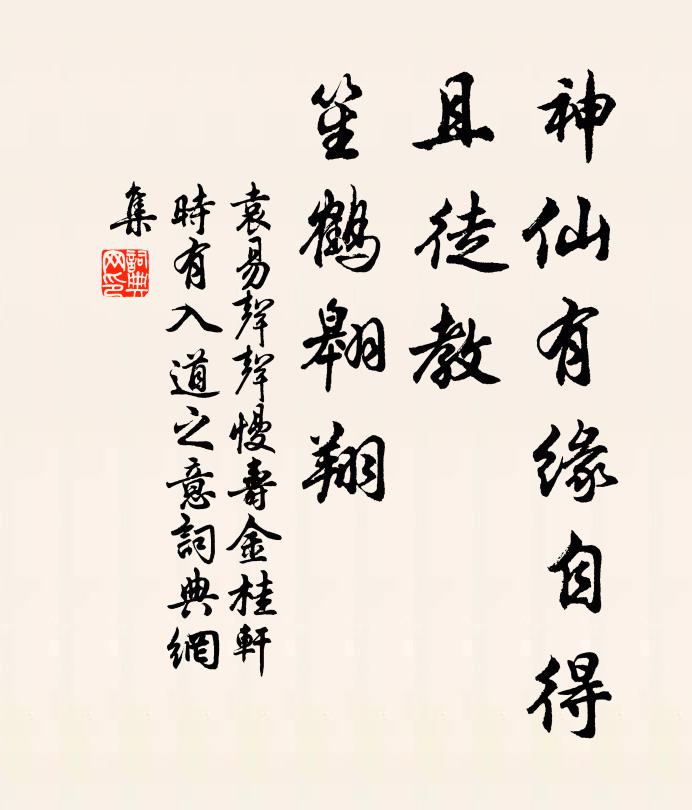 神仙有缘自得
且徒教
笙鹤翱翔
袁易聲聲慢壽金桂軒
時有入道之意詞典網
集
詞典
网印